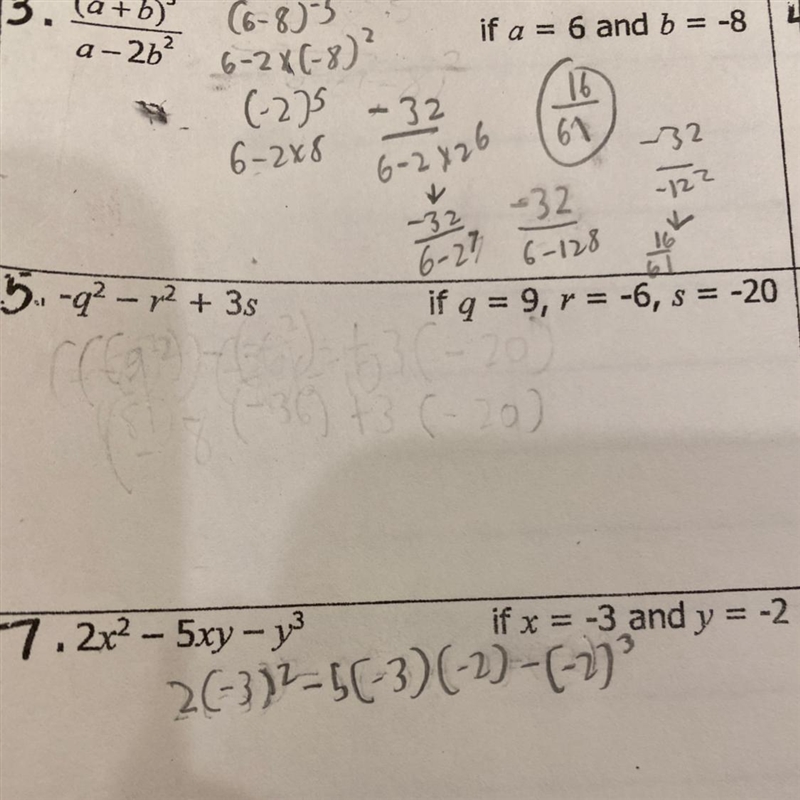 3. (a + b)⁵ / a − 2b² if a = 6 and b = -8
(6-8)⁻⁵ / 6-2×(-8)²
(-2)⁵ / 6-2×8
-32 / 6-2×2⁶
16/61
-32 / -122
↓
-32 / 6-2⁷
-32 / 6-128
↓
16/61
5. -q² − r² + 3s if q = 9, r = -6, s = -20
3(-20)
(-36) + 3 (-20)
7. 2x² − 5xy − y³ if x = -3 and y = -2
2(-3)²-5(-3)(-2)-(-2)³